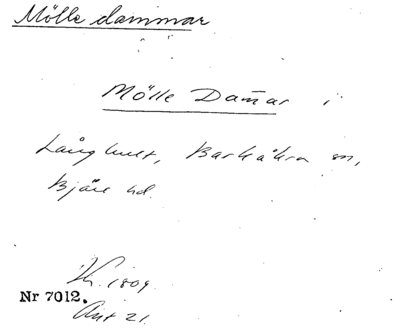 Mölle dammar
Mölle Dam̄ar i
Långhult, Barkåkra sn,
Bjäre hd.
1809
Nr 7012.
Akt 21.